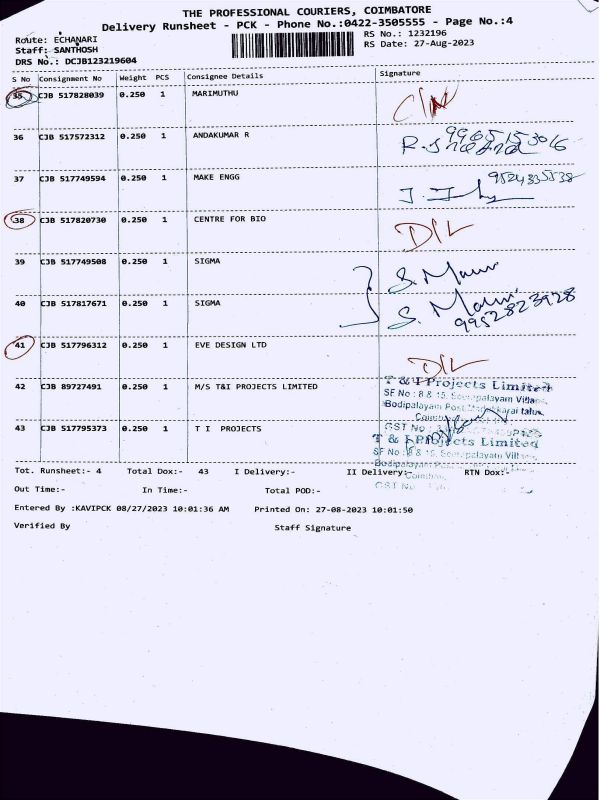 THE PROFESSIONAL COURIERS, COIMBATORE
Delivery Runsheet - PCK - Phone No.:0422-3505555 - Page No.:4
Route: ECHANARI RS No.: 1232196
Staff: SANTHOSH RS Date: 27-Aug-2023
DRS No.: DCJB123219604
S No Consignment No Weight PCS Consignee Details Signature
35 CJB 517828039 0.250 1 MARIMUTHU
36 CJB 517572312 0.250 1 ANDAKUMAR R
37 CJB 517749594 0.250 1 MAKE ENGG 9524335538
38 CJB 517820730 0.250 1 CENTRE FOR BIO D/L
39 CJB 517749508 0.250 1 SIGMA
40 CJB 517817671 0.250 1 SIGMA 9952823928
41 CJB 517796312 0.250 1 EVE DESIGN LTD D/L
42 CJB 89727491 0.250 1 M/S T&I PROJECTS LIMITED T & I Projects Limited
SF No : 8 & 15,
Bodipalayam Post
GST No :
43 CJB 517795373 0.250 1 T I PROJECTS T & I Projects Limited
SF No : 8 & 15,
Tot. Runsheet:- 4 Total Dox:- 43 I Delivery:- II Delivery:- RTN Dox:-
Out Time:- In Time:- Total POD:-
Entered By :KAVIPCK 08/27/2023 10:01:36 AM Printed On: 27-08-2023 10:01:50
Verified By Staff Signature